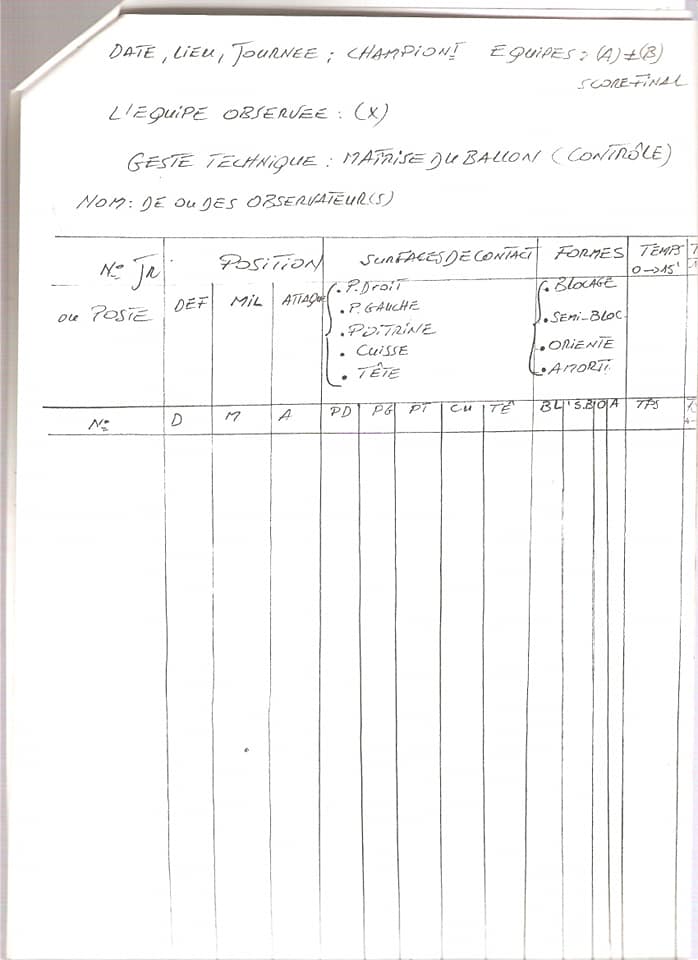 DATE, LIEU, JOURNEE ; CHAMPIONT EQUIPES : (A) ≠ (B)
SCORE FINAL
L'EQUIPE OBSERVEE : (X)
GESTE TECHNIQUE : MAITRISE DU BALLON (CONTRÔLE)
NOM : DE OU DES OBSERVATEUR(S)
N° JR POSITION SURFACES DE CONTACT FORMES TEMPS
0 → 15'
ou POSTE DEF MIL ATTAQUE
. P. DROIT
. P. GAUCHE
. POITRINE
. CUISSE
. TÊTE
. BLOCAGE
. SEMI-BLOC
. ORIENTE
. AMORTI.
N° D M A PD PG PT CU TÊ BL S.B O A TPS